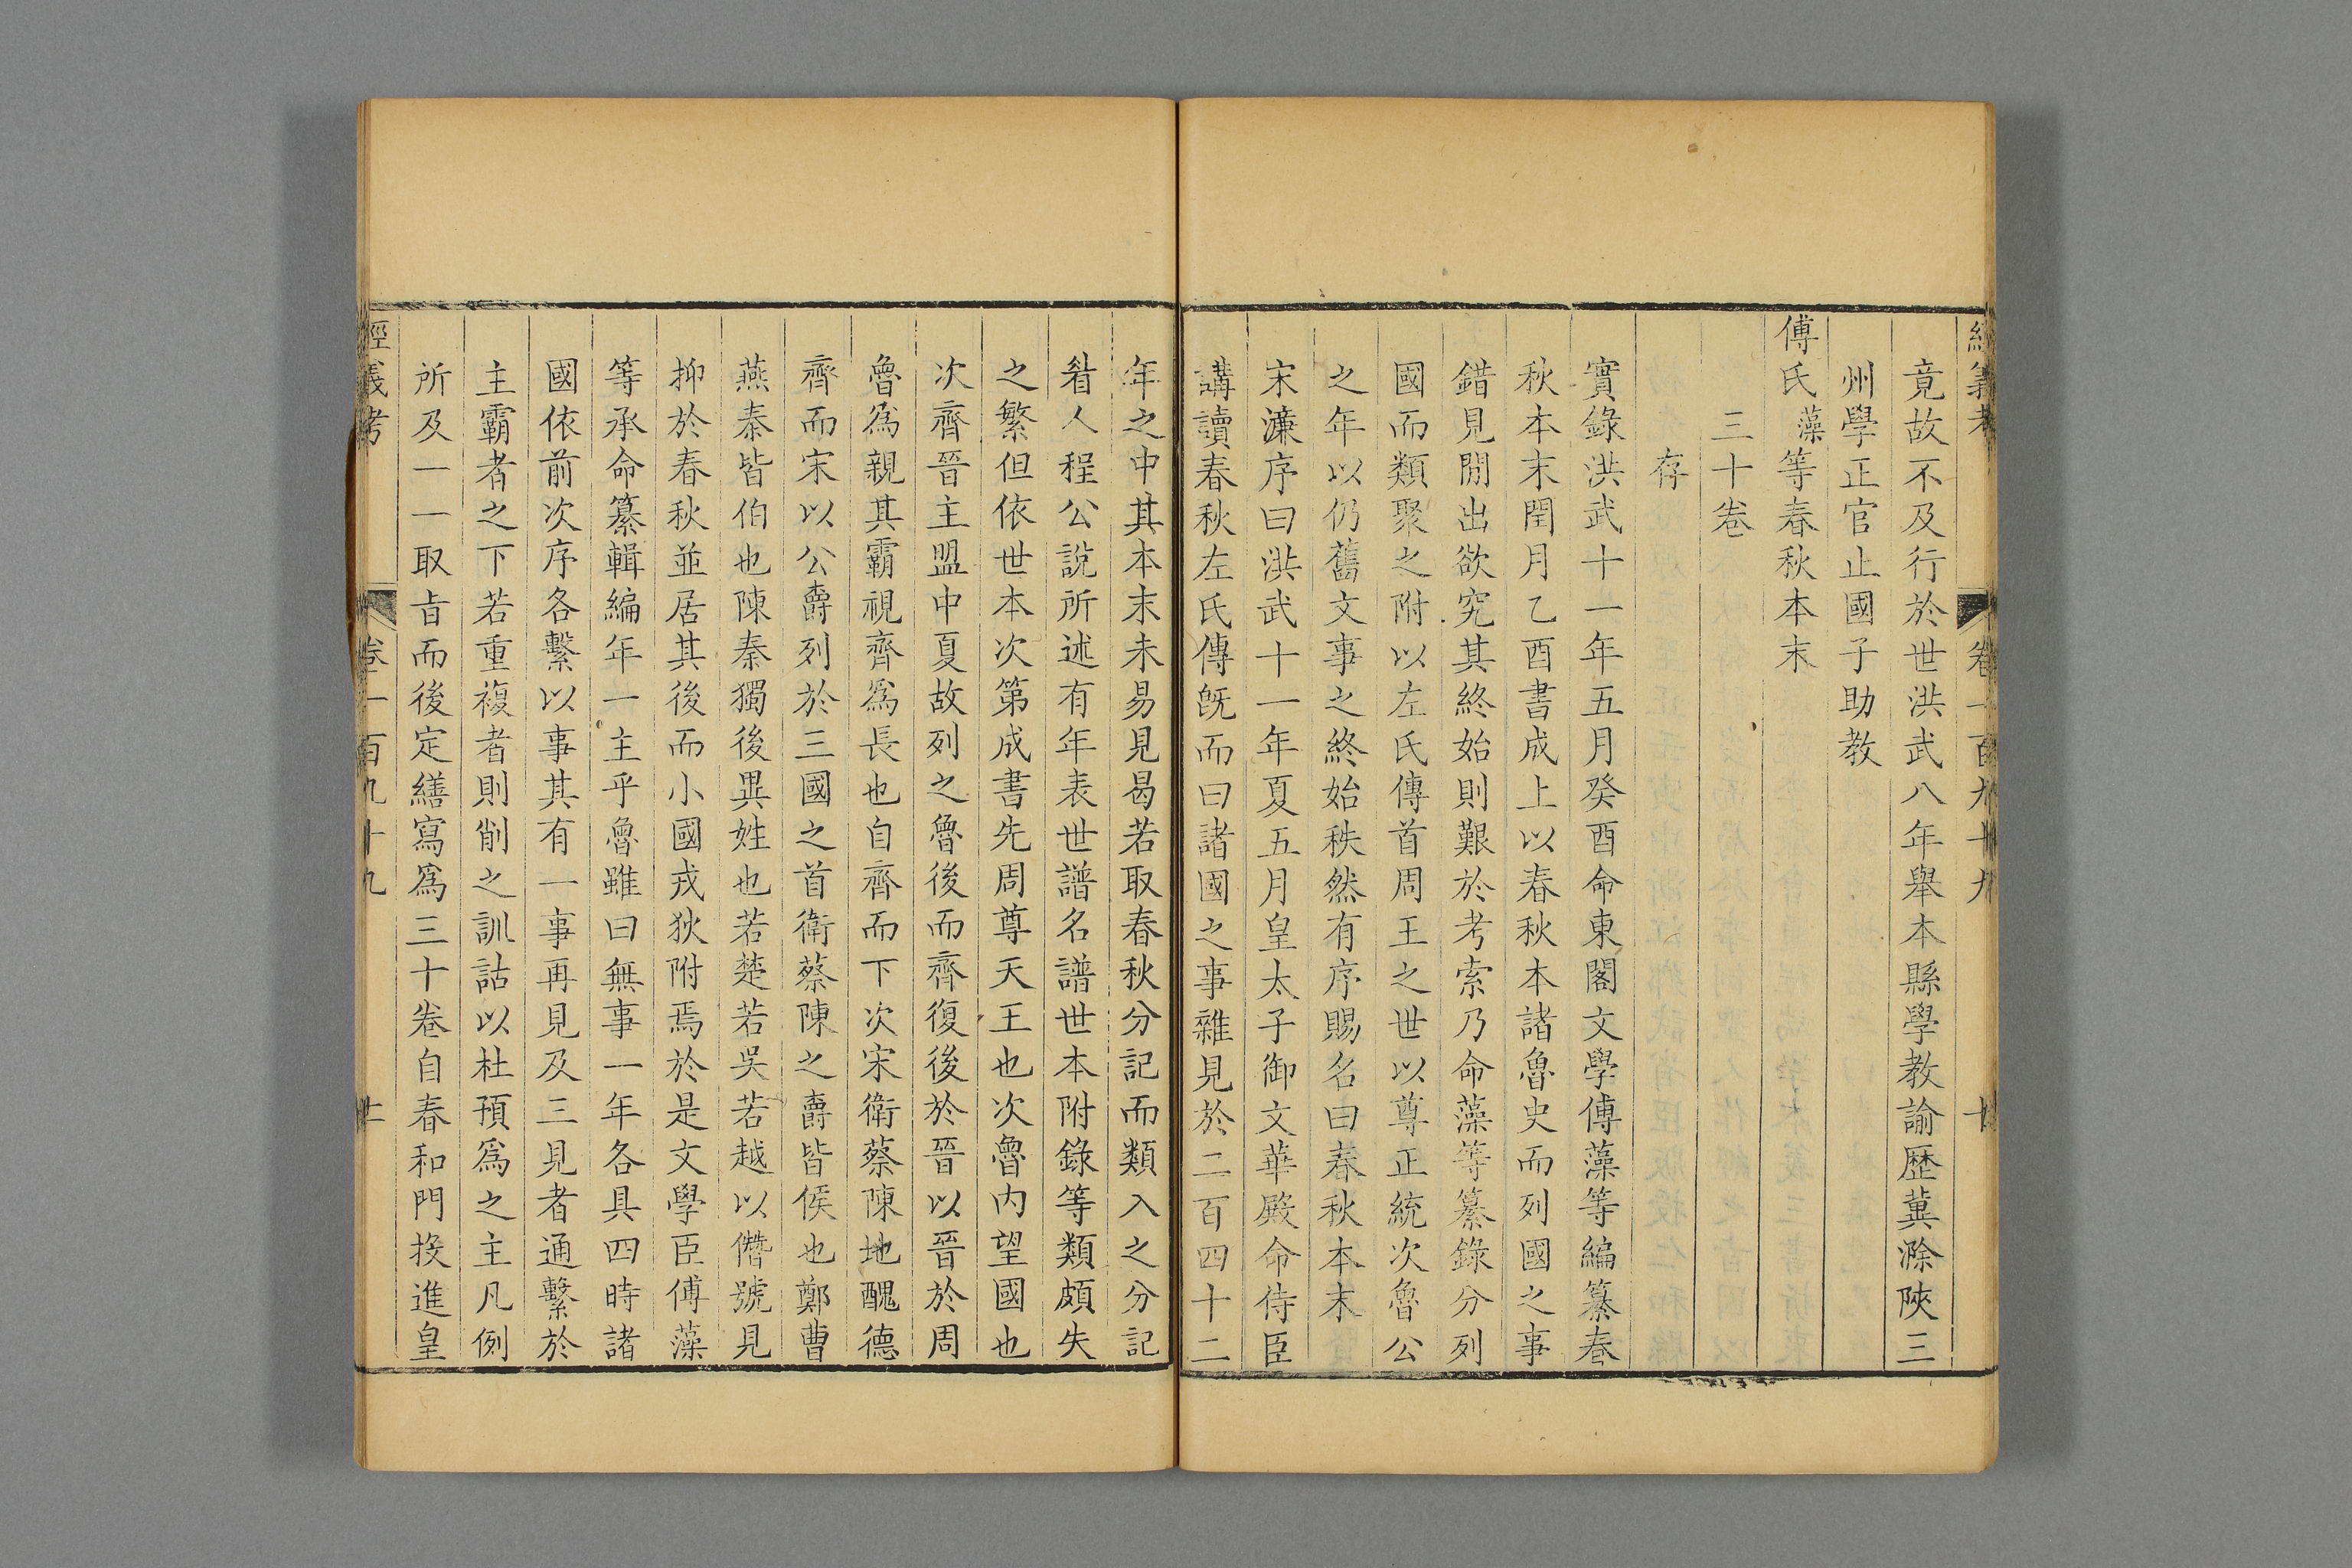 竟故不及行於世洪武八年舉本縣學教諭歷冀滁陝三
州學正官止國子助教
傅氏藻等春秋本末
三十卷
存
實錄洪武十一年五月癸酉命東閣文學傅藻等編纂春
秋本末閏月乙酉書成上以春秋本諸魯史而列國之事
錯見閒出欲究其終始則艱於考索乃命藻等纂錄分列
國而類聚之附以左氏傳首周王之世以尊正統次魯公
之年以仍舊文事之終始秩然有序賜名曰春秋本末
宋濂序曰洪武十一年夏五月皇太子御文華殿命侍臣
講讀春秋左氏傳旣而曰諸國之事雜見於二百四十二
年之中其本末未易見曷若取春秋分記而類入之分記
眷人程公說所述有年表世譜名譜世本附錄等類頗失
之繁但依世本次第成書先周尊天王也次魯內望國也
次齊晉主盟中夏故列之魯後而齊復後於晉以晉於周
魯爲親其霸視齊爲長也自齊而下次宋衛蔡陳地醜德
齊而宋以公爵列於三國之首衛蔡陳之爵皆侯也鄭曹
燕秦皆伯也陳秦獨後異姓也若楚若吳若越以僭號見
抑於春秋並居其後而小國戎狄附焉於是文學臣傅藻
等承命纂輯編年一主乎魯雖曰無事一年各具四時諸
國依前次序各繫以事其有一事再見及三見者通繫於
主霸者之下若重複者則削之訓詁以杜預爲之主凡例
所及一一取旨而後定繕寫爲三十卷自春和門投進皇
經義考 卷一百九十九 十
經義考 卷一百九十九